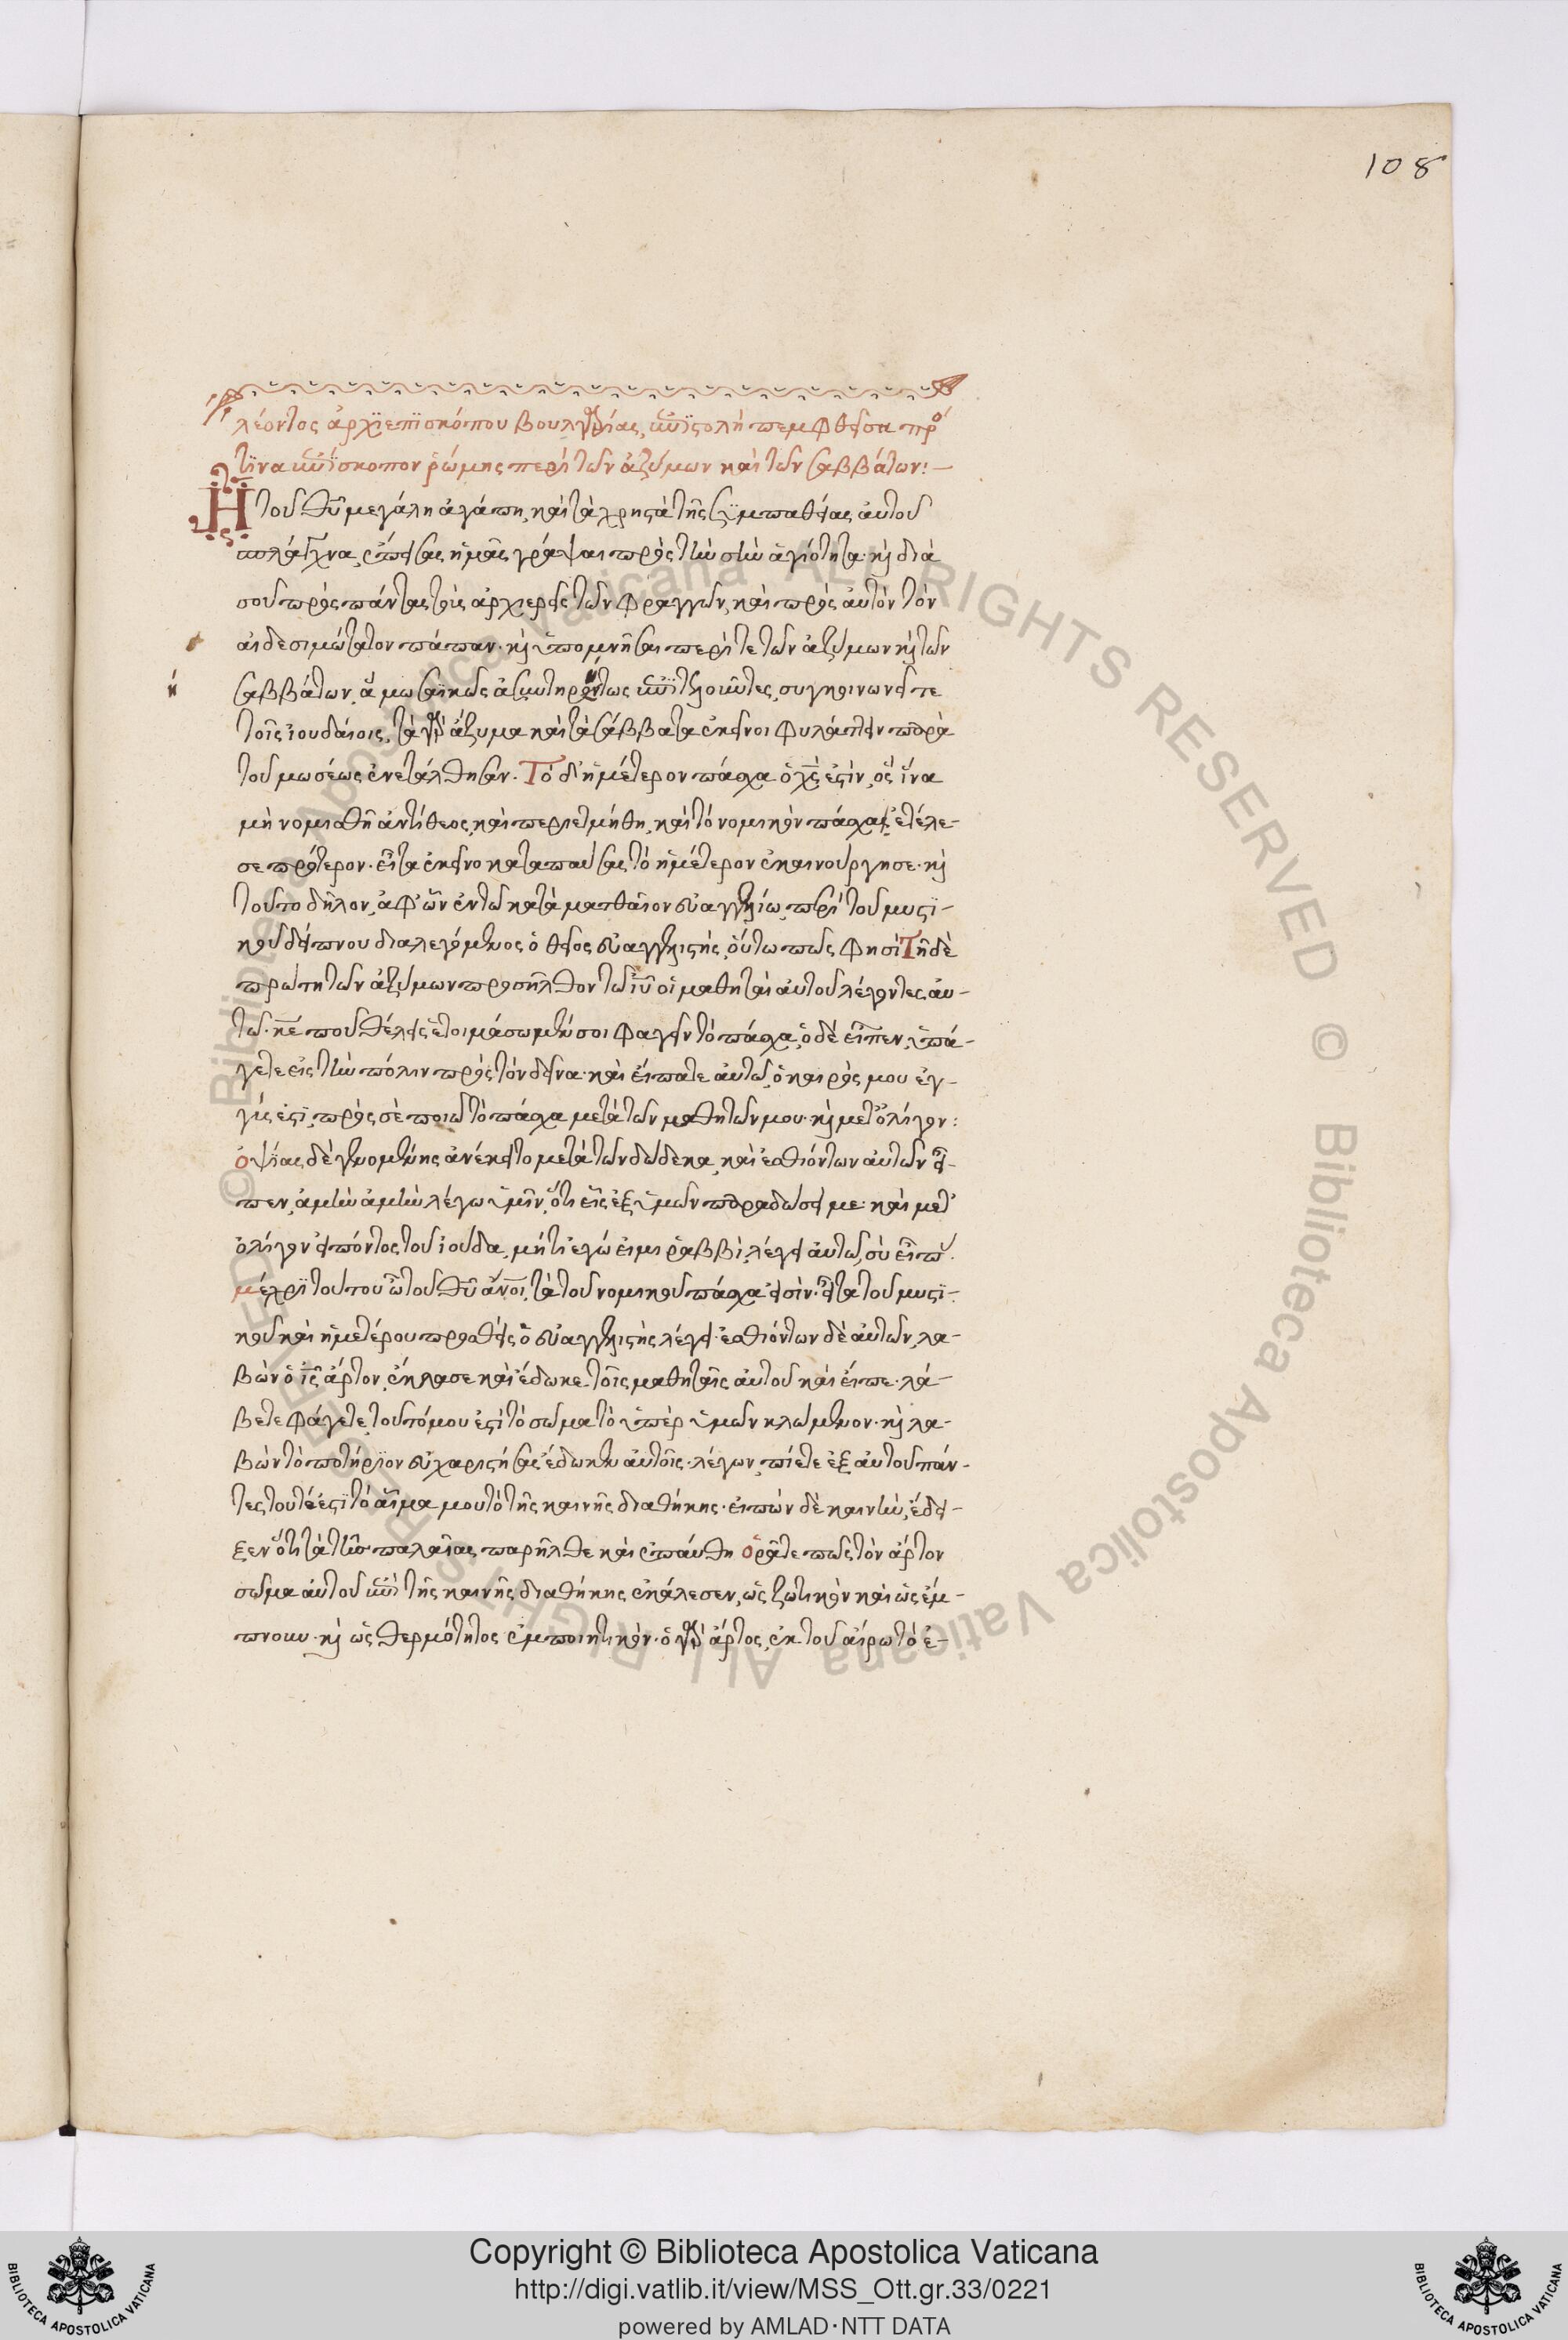 108
λέοντος ἀρχϊεπϊσκόπου βουλγαρίας, ἐπϊστολὴ πεμφθεῖσα πρό
τϊνα ἐπϊσκοπον ῥώμης περὶ τῶν ἀζύμων καὶ τῶν σαββάτων:—
Ἡ τοῦ θῦ μεγάλη ἀγάπη, καὶ τὰ χρηστὰ τῆς συμπαθείας αὐτοῦ
σπλάγχνα, ἔπεισας ἡμᾶς γράψαι πρὸς τὴν σὴν ἁγιότητα· κὶ διὰ
σοῦ πρὸς πάντας τοὺς ἀρχιερεῖς τῶν φράγγων, καὶ πρὸς αὐτὸν τὸν
αἰδεσιμώτατον πάπαν· κὶ ὑπομνῆσαι περὶ τε τῶν ἀζύμων κὶ τῶν
σαββάτων,
τοῖς ἰουδαίοις, τὰ γὰρ ἄζυμα καὶ τὰ σάββατα ἐκεῖνοι φυλάττειν παρὰ
τοῦ μωσέως ἐνετάλθησαν. Τὸ δ' ἡμέτερον πάσχα ὁ χς ἐστὶν, ὃς ἵνα
μὴ νομισθῆ ἀντίθεος, καὶ περιετμήθη, καὶ τὸ νομικὸν πάσχα ἐτέλε-
σε πρότερον· εἶτα ἐκεῖνο καταπαύσας τὸ ἡμέτερον ἐκαινούργησε· κὶ
τοῦτο δῆλον, ἀφ' ὧν ἐν τῶ κατὰ ματθαῖον εὐαγγελίω, περὶ τοῦ μυστϊ-
κοῦ δείπνου διαλεγόμενος ὁ θεῖος εὐαγγελιστὴς, οὕτω πως φησὶ Τῆ δὲ
πρώτη τῶν ἀζύμων προσῆλθον τῶ ιῦ οἱ μαθηταὶ αὐτοῦ λέγοντες αὐ-
τῶ· κε ποῦ θέλεις ἑτοιμάσωμεν σοι φαγεῖν τὸ πάσχα, ὁ δὲ εἶπεν, ὑπά-
γετε εἰς τὴν πόλιν πρὸς τὸν δεῖνα· καὶ εἴπατε αὐτῶ, ὁ καιρός μου ἐγ-
γύς ἐστι, πρὸς σὲ ποιῶ τὸ πάσχα μετὰ τῶν μαθητῶν μου· κὶ μετ' ὀλίγον:
ὀψίας δὲ γενομένης ἀνέκειτο μετὰ τῶν δώδεκα, καὶ ἐσθιόντων αὐτῶν εἶ-
πεν, ἀμὴν ἀμὴν λέγω ὑμῖν, ὅτι εἷς ἐξ ὑμῶν παραδώσει με· καὶ μετ'
ὀλίγον εἰπόντος τοῦ ἰούδα, μήτι ἐγώ εἰμι ῥαββὶ, λέγει αὐτῶ, σὺ εἶπας.
μέχρϊ τούτου ὦ τοῦ θῦ ἄνοι, τὰ τοῦ νομικοῦ πάσχα εἰσίν· εἶτα τοῦ μυστϊ-
κοῦ καὶ ἡμετέρου προσθεὶς ὁ εὐαγγελιστὴς λέγει· ἐσθιόντων δὲ αὐτῶν, λα-
βὼν ὁ ις ἄρτον, ἔκλασε καὶ ἔδωκε τοῖς μαθηταῖς αὐτοῦ καὶ εἶπε· λά-
βετε φάγετε, τοῦτό μου ἐστὶ τὸ σῶμα τὸ ὑπὲρ ὑμῶν κλώμενον· κὶ λα-
βὼν τὸ ποτήρϊον εὐχαριστήσας ἔδωκεν αὐτοῖς· λέγων, πίετε ἐξ αὐτοῦ πάν-
τες τοῦτό ἐστϊ τὸ αἷμα μου τὸ τῆς καινῆς διαθήκης· εἰπὼν δὲ καινὴν, ἔδει-
ξεν ὅτι τὰ τῆς παλαιᾶς παρῆλθε καὶ ἐπαύθη ὁρᾶτε πῶς τὸν ἄρτον
σῶμα αὐτοῦ ἐπὶ τῆς καινῆς διαθήκης ἐκάλεσεν, ὡς ζωτικὸν καὶ ὡς ἔμ-
πνουν· κὶ ὡς θερμότητος ἐμποιητικὸν· ὁ γὰρ ἄρτος, ἐκ τοῦ αἴρω τὸ ἐ-
Copyright © Biblioteca Apostolica Vaticana
http://digi.vatlib.it/view/MSS_Ott.gr.33/0221
powered by AMLAD·NTT DATA